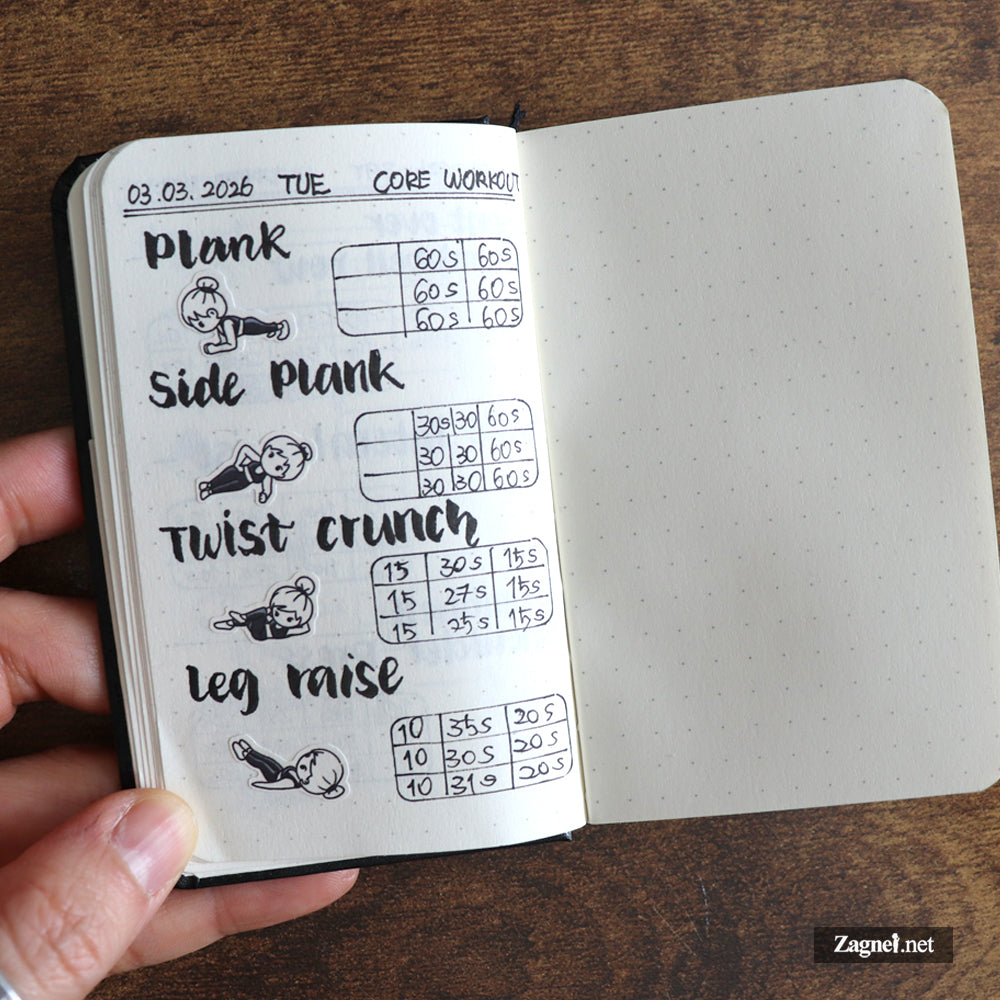 03.03.2026 TUE CORE WORKOUT
Plank
60s 60s
60s 60s
60s 60s
Side Plank
30s 30 60s
30 30 60s
30 30 60s
Twist crunch
15 30s 15s
15 27s 15s
15 25s 15s
Leg raise
10 35s 20s
10 30s 20s
10 31s 20s
Zagnei.net